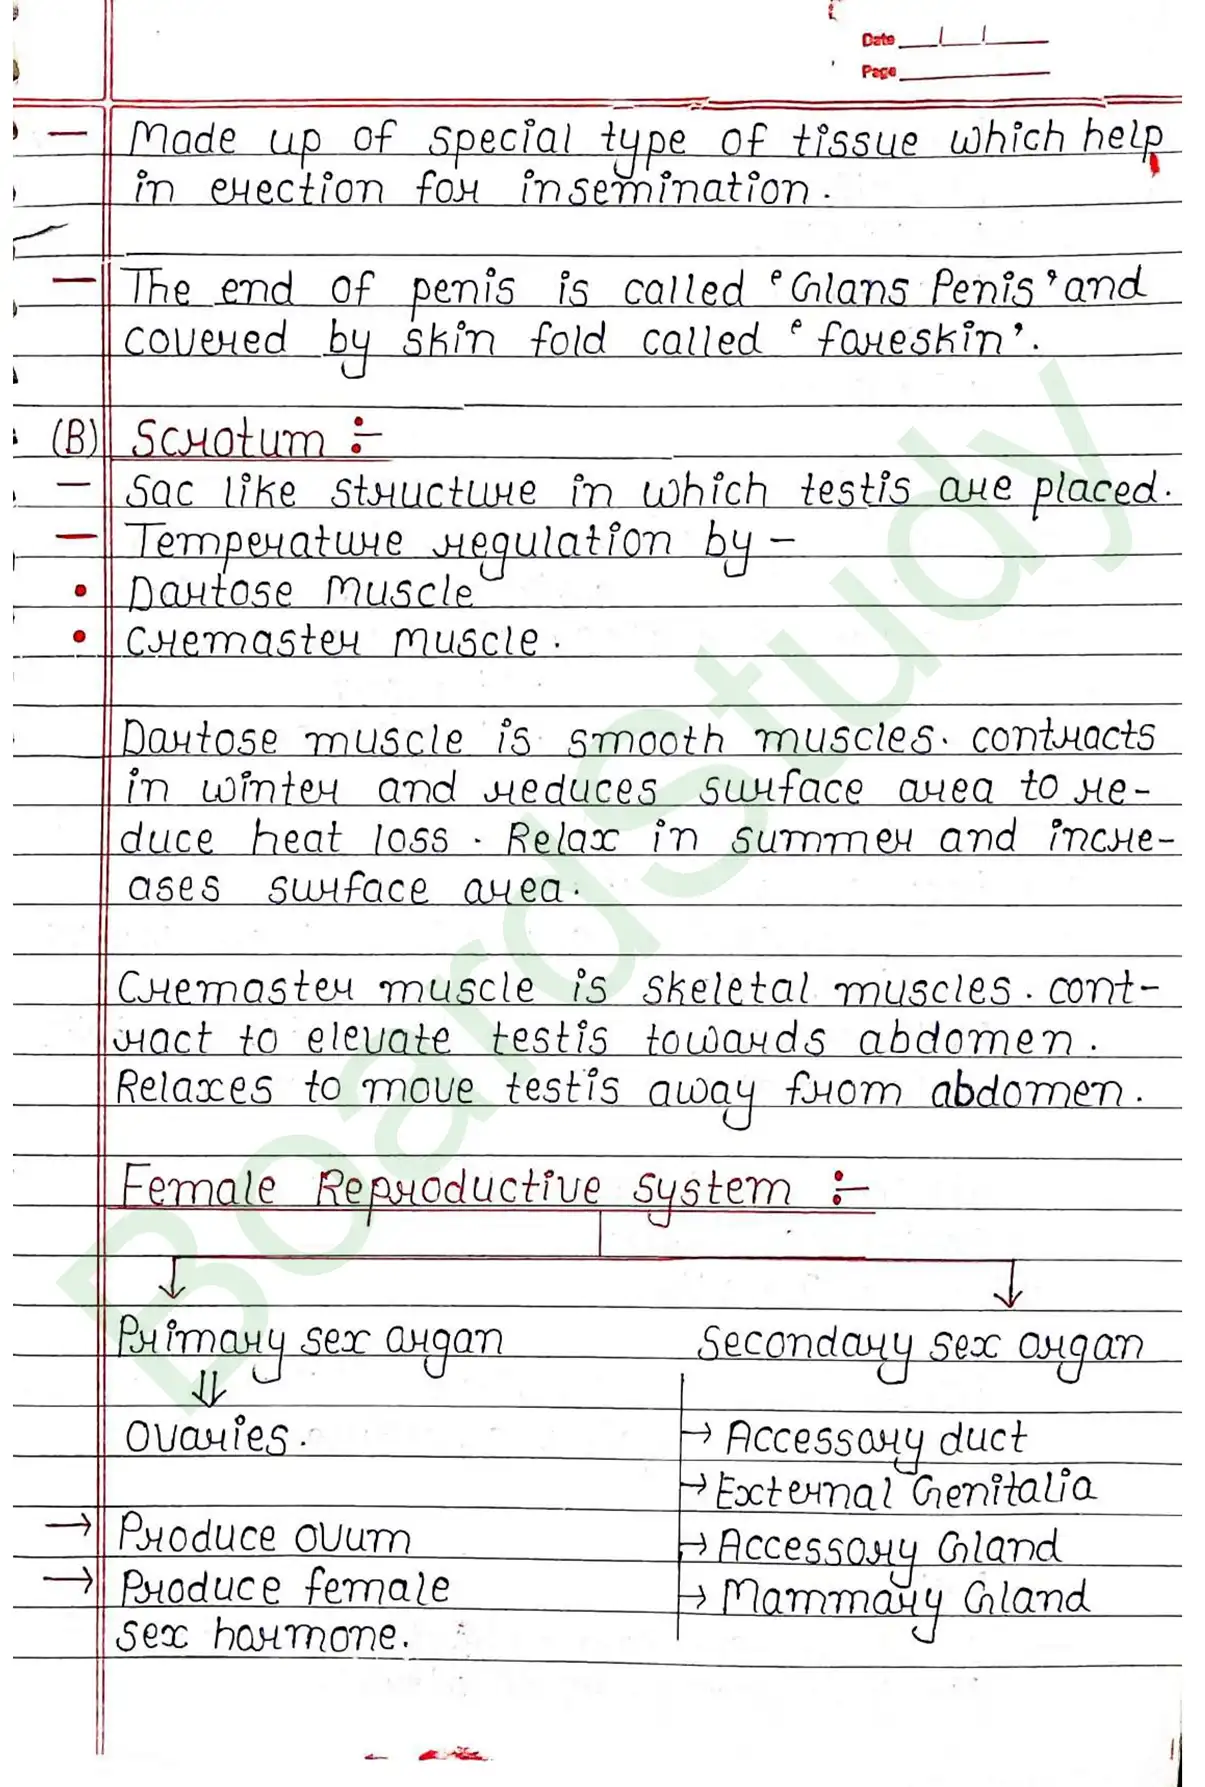 Date
Page
— Made up of special type of tissue which help
in erection for insemination.
— The end of penis is called 'Glans Penis' and
covered by skin fold called 'foreskin'.
(B) Scrotum :-
— Sac like structure in which testis are placed.
— Temperature regulation by -
• Dartose Muscle
• Cremaster muscle.
Dartose muscle is smooth muscles. contracts
in winter and reduces surface area to re-
duce heat loss. Relax in summer and incre-
ases surface area.
Cremaster muscle is skeletal muscles. cont-
ract to elevate testis towards abdomen.
Relaxes to move testis away from abdomen.
Female Reproductive system :-
Primary sex organ
⇓
Ovaries.
→ Produce ovum
→ Produce female
sex hormone.
Secondary sex organ
→ Accessory duct
→ External Genitalia
→ Accessory Gland
→ Mammary Gland
BoardStudy